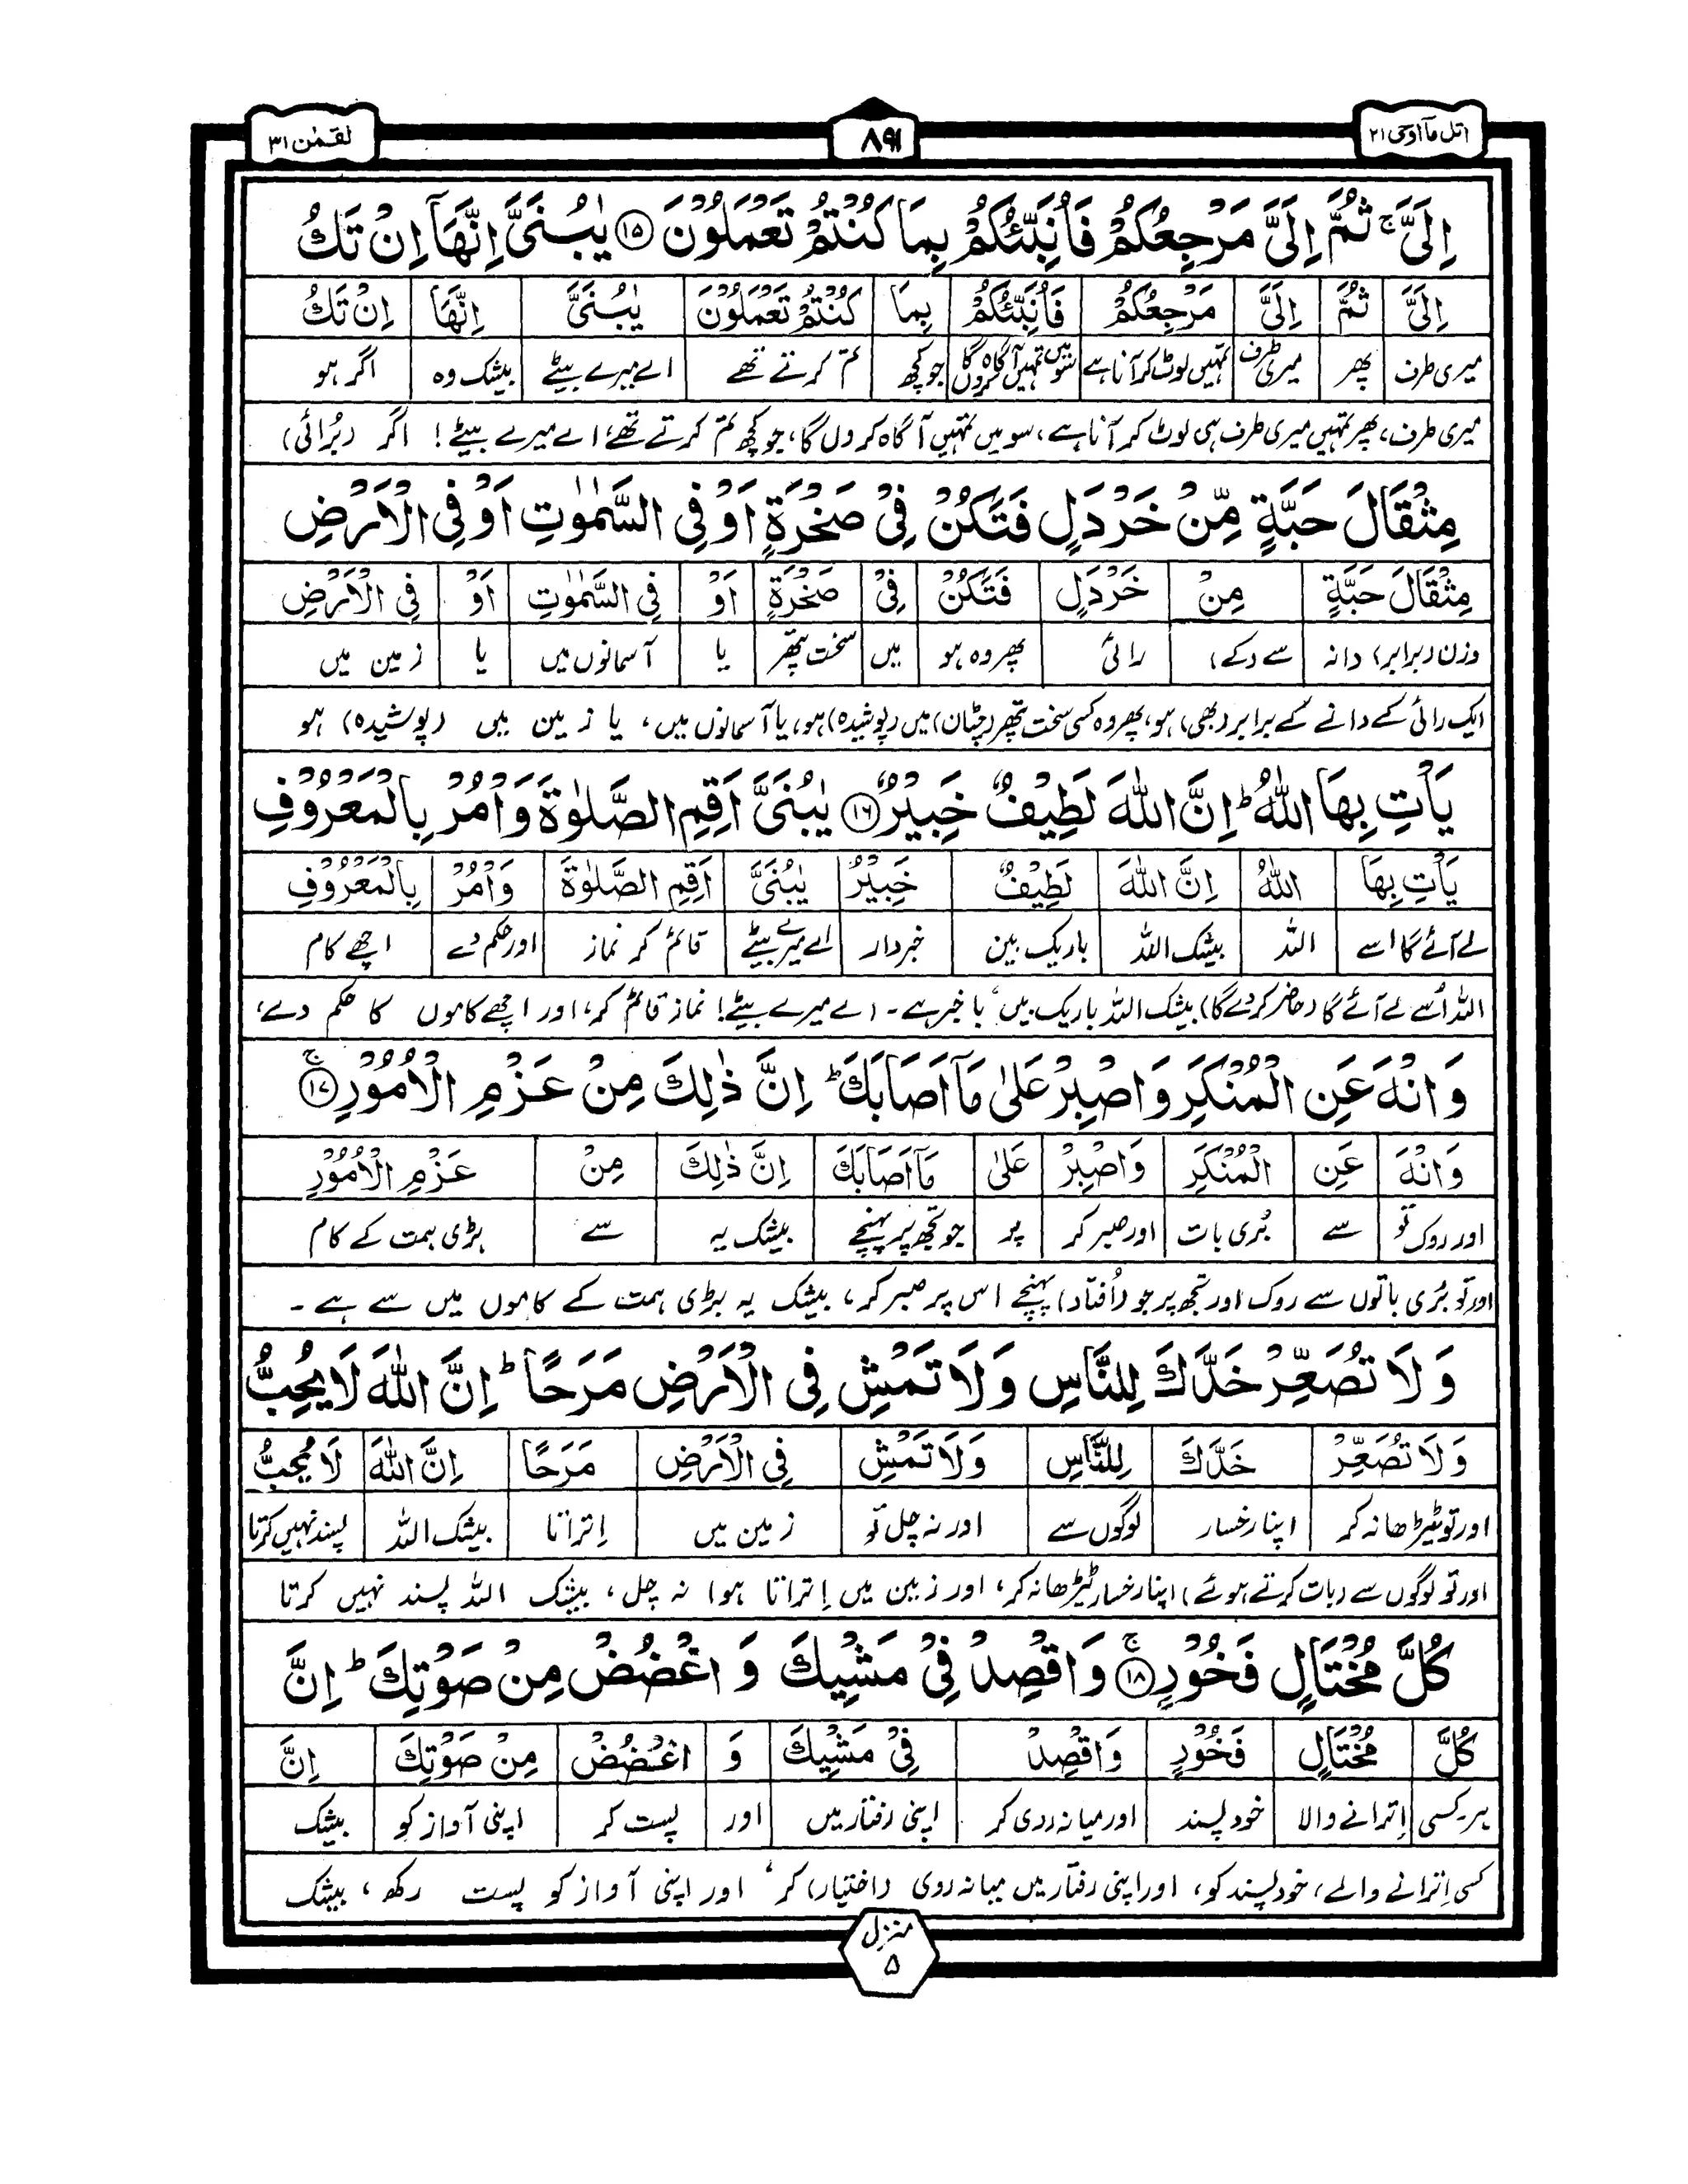 اتل مآ اوحی ۲۱
۸۹۱
لقمٰن ۳۱
اِلَیَّ ۚ ثُمَّ اِلَیَّ مَرْجِعُكُمْ فَاُنَبِّئُكُمْ بِمَا كُنْتُمْ تَعْمَلُوْنَ ۝۱۵ یٰبُنَیَّ اِنَّهَاۤ اِنْ تَكُ
اِلَیَّ ثُمَّ اِلَیَّ مَرْجِعُكُمْ فَاُنَبِّئُكُمْ بِمَا كُنْتُمْ تَعْمَلُوْنَ یٰبُنَیَّ اِنَّهَا اِنْ تَكُ
میری طرف پھر میری طرف تمہیں لوٹ کر آنا ہے سو میں تمہیں آگاہ کروں گا جو کچھ تم کرتے تھے اے میرے بیٹے بیشک وہ اگر ہو
میری طرف، پھر تمہیں میری طرف ہی لوٹ کر آنا ہے، سو میں تمہیں آگاہ کروں گا، جو کچھ تم کرتے تھے، اے میرے بیٹے! اگر (برُائی)
مِثْقَالَ حَبَّةٍ مِّنْ خَرْدَلٍ فَتَكُنْ فِیْ صَخْرَةٍ اَوْ فِی السَّمٰوٰتِ اَوْ فِی الْاَرْضِ
مِثْقَالَ حَبَّةٍ مِنْ خَرْدَلٍ فَتَكُنْ فِیْ صَخْرَةٍ اَوْ فِی السَّمٰوٰتِ اَوْ فِی الْاَرْضِ
وزن (برابر) دانہ سے (کے) رائی پھر وہ ہو میں سخت پتھر یا آسمانوں میں یا زمین میں
ایک رائی کے دانے کے برابر (بھی) ہو، پھر وہ کسی سخت پتھر (چٹان) میں (پوشیدہ) ہو، یا آسمانوں میں، یا زمین میں (پوشیدہ) ہو
یَاْتِ بِهَا اللّٰهُ ؕ اِنَّ اللّٰهَ لَطِیْفٌ خَبِیْرٌ ۝۱۶ یٰبُنَیَّ اَقِمِ الصَّلٰوةَ وَاْمُرْ بِالْمَعْرُوْفِ
یَاْتِ بِهَا اللّٰهُ اِنَّ اللّٰهَ لَطِیْفٌ خَبِیْرٌ یٰبُنَیَّ اَقِمِ الصَّلٰوةَ وَاْمُرْ بِالْمَعْرُوْفِ
لے آئے گا اسے اللہ بیشک اللہ باریک بین خبردار اے میرے بیٹے قائم کر نماز اور حکم دے اچھے کام
اللہ اُسے لے آئے گا (حاضر کر دے گا) بیشک اللہ باریک بیں، باخبر ہے۔ اے میرے بیٹے! نماز قائم کر، اور اچھے کاموں کا حکم دے،
وَانْهَ عَنِ الْمُنْكَرِ وَاصْبِرْ عَلٰی مَاۤ اَصَابَكَ ؕ اِنَّ ذٰلِكَ مِنْ عَزْمِ الْاُمُوْرِ ۝۱۷ ۚ
وَانْهَ عَنِ الْمُنْكَرِ وَاصْبِرْ عَلٰی مَاۤ اَصَابَكَ اِنَّ ذٰلِكَ مِنْ عَزْمِ الْاُمُوْرِ
اور روک تو سے بُری بات اور صبر کر پر جو تجھ پر پہنچے بیشک یہ سے بڑی ہمت کے کام
اور تو بُری باتوں سے روک اور تجھ پر جو (اُفتاد) پہنچے اس پر صبر کر، بیشک یہ بڑی ہمت کے کاموں میں سے ہے۔
وَلَا تُصَعِّرْ خَدَّكَ لِلنَّاسِ وَلَا تَمْشِ فِی الْاَرْضِ مَرَحًا ؕ اِنَّ اللّٰهَ لَا یُحِبُّ
وَلَا تُصَعِّرْ خَدَّكَ لِلنَّاسِ وَلَا تَمْشِ فِی الْاَرْضِ مَرَحًا اِنَّ اللّٰهَ لَا یُحِبُّ
اور تو ٹیڑھا نہ کر اپنا رخسار لوگوں سے اور نہ چل تو زمین میں اِتراتا بیشک اللہ پسند نہیں کرتا
اور تو لوگوں سے (بات کرتے ہوئے) اپنا رخسار ٹیڑھا نہ کر، اور زمین میں اِتراتا ہوا نہ چل، بیشک اللہ پسند نہیں کرتا
كُلَّ مُخْتَالٍ فَخُوْرٍ ۝۱۸ ۚ وَاقْصِدْ فِیْ مَشْیِكَ وَ اغْضُضْ مِنْ صَوْتِكَ ؕ اِنَّ
كُلَّ مُخْتَالٍ فَخُوْرٍ وَاقْصِدْ فِیْ مَشْیِكَ وَ اغْضُضْ مِنْ صَوْتِكَ اِنَّ
ہر کسی اِترانے والا خود پسند اور میانہ روی کر اپنی رفتار میں اور پست کر اپنی آواز کو بیشک
کسی اِترانے والے، خود پسند کو، اور اپنی رفتار میں میانہ روی (اختیار) کر، اور اپنی آواز کو پست رکھ، بیشک
منزل
۵